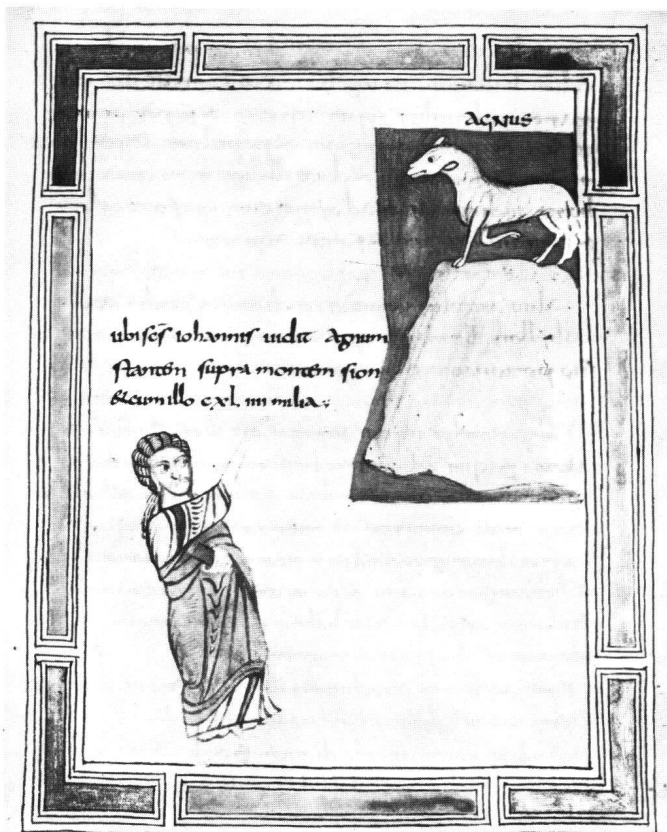 AGNUS
ubi scs iohannis uidit Agnum
stantem supra montem sion
& cum illo c.xl. iiii milia